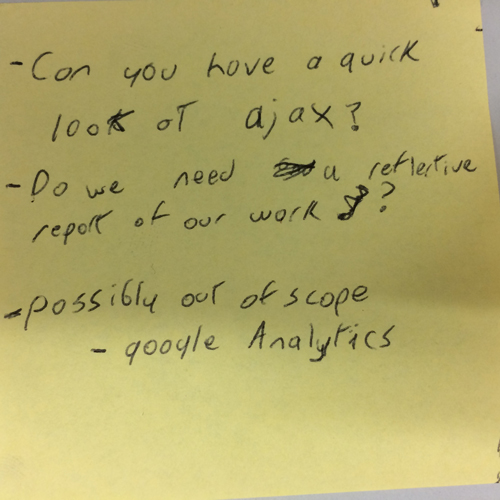 - Can you have a quick
look at ajax?
- Do we need a reflective
report of our work ?
- possibly out of scope
- google Analytics